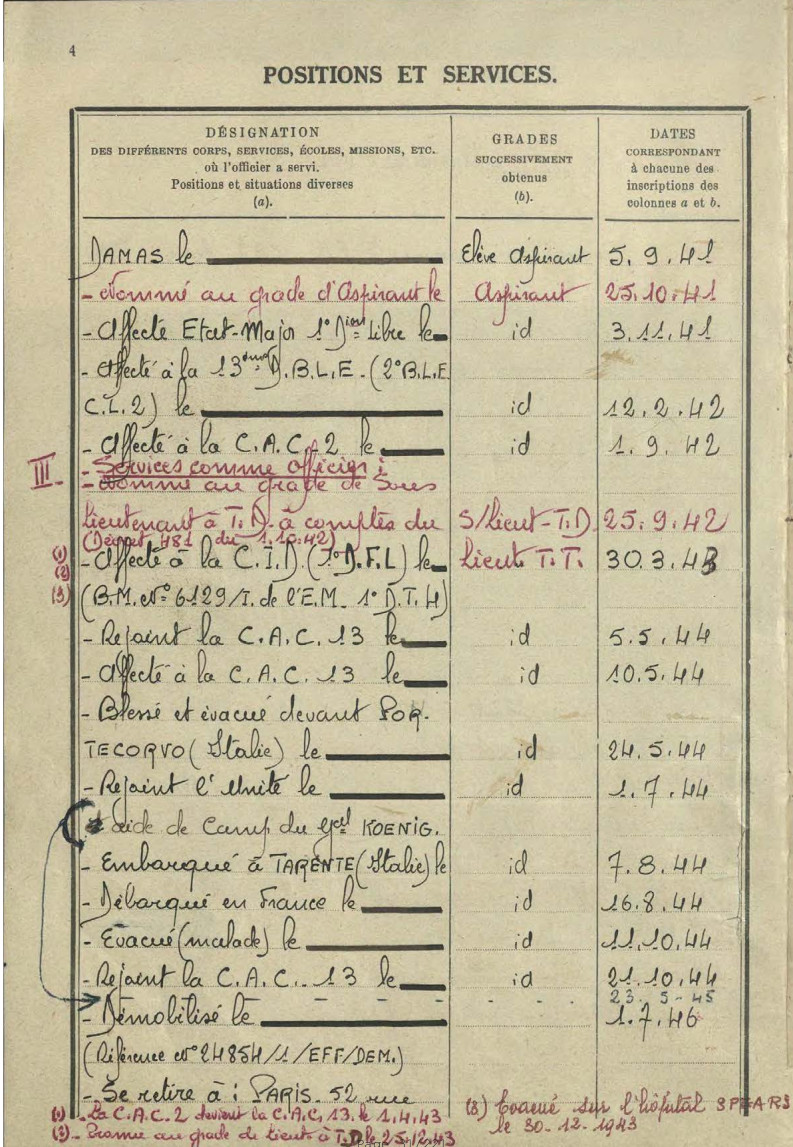 4
POSITIONS ET SERVICES.
DÉSIGNATION
DES DIFFÉRENTS CORPS, SERVICES, ÉCOLES, MISSIONS, ETC.
où l'officier a servi.
Positions et situations diverses
(a).
GRADES
SUCCESSIVEMENT
obtenus
(b).
DATES
CORRESPONDANT
à chacune des
inscriptions des
colonnes a et b.
DAMAS le Elève Aspirant 5.9.41
- Nommé au grade d'Aspirant le Aspirant 25.10.41
- Affecté Etat-Major 1° Dion Libre le id 3.11.41
- Affecté à la 13ème D.B.L.E. (2°B.L.E
C.L.2) le id 12.2.42
- Affecté à la C.A.C. 2 le id 1.9.42
III - Services comme officier :
- Nommé au grade de Sous
Lieutenant à T.D. à compter du S/Lieut-T.D. 25.9.42
(Décret 481 du 1.10.42)
(1) - Affecté à la C.I.D. (1° D.F.L) le Lieut. T.T. 30.3.43
(2)
(3) (B.M. N° 6129/I. de l'E.M. 1° D.T.4)
- Rejoint la C.A.C. 13 le id 5.5.44
- Affecté à la C.A.C. 13 le id 10.5.44
- Blessé et évacué devant POR-
TECORVO (Italie) le id 24.5.44
- Rejoint l'Unité le id 1.7.44
aide de Camp du Gal KOENIG.
- Embarqué à TARENTE (Italie) le id 7.8.44
- Débarqué en France le id 16.8.44
- Evacué (malade) le id 11.10.44
- Rejoint la C.A.C. 13 le id 21.10.44
23-5-45
- Démobilisé le 1.7.46
(Référence N° 24854/1/EFF/DEM.)
- Se retire à : PARIS - 52 rue
(1) - La C.A.C. 2 devient la C.A.C. 13. le 1.4.43
(3) Evacué sur l'hôpital SPEARS
le 30-12-1943
(2) - Promu au grade de Lieut à T.D. le 25.12.43